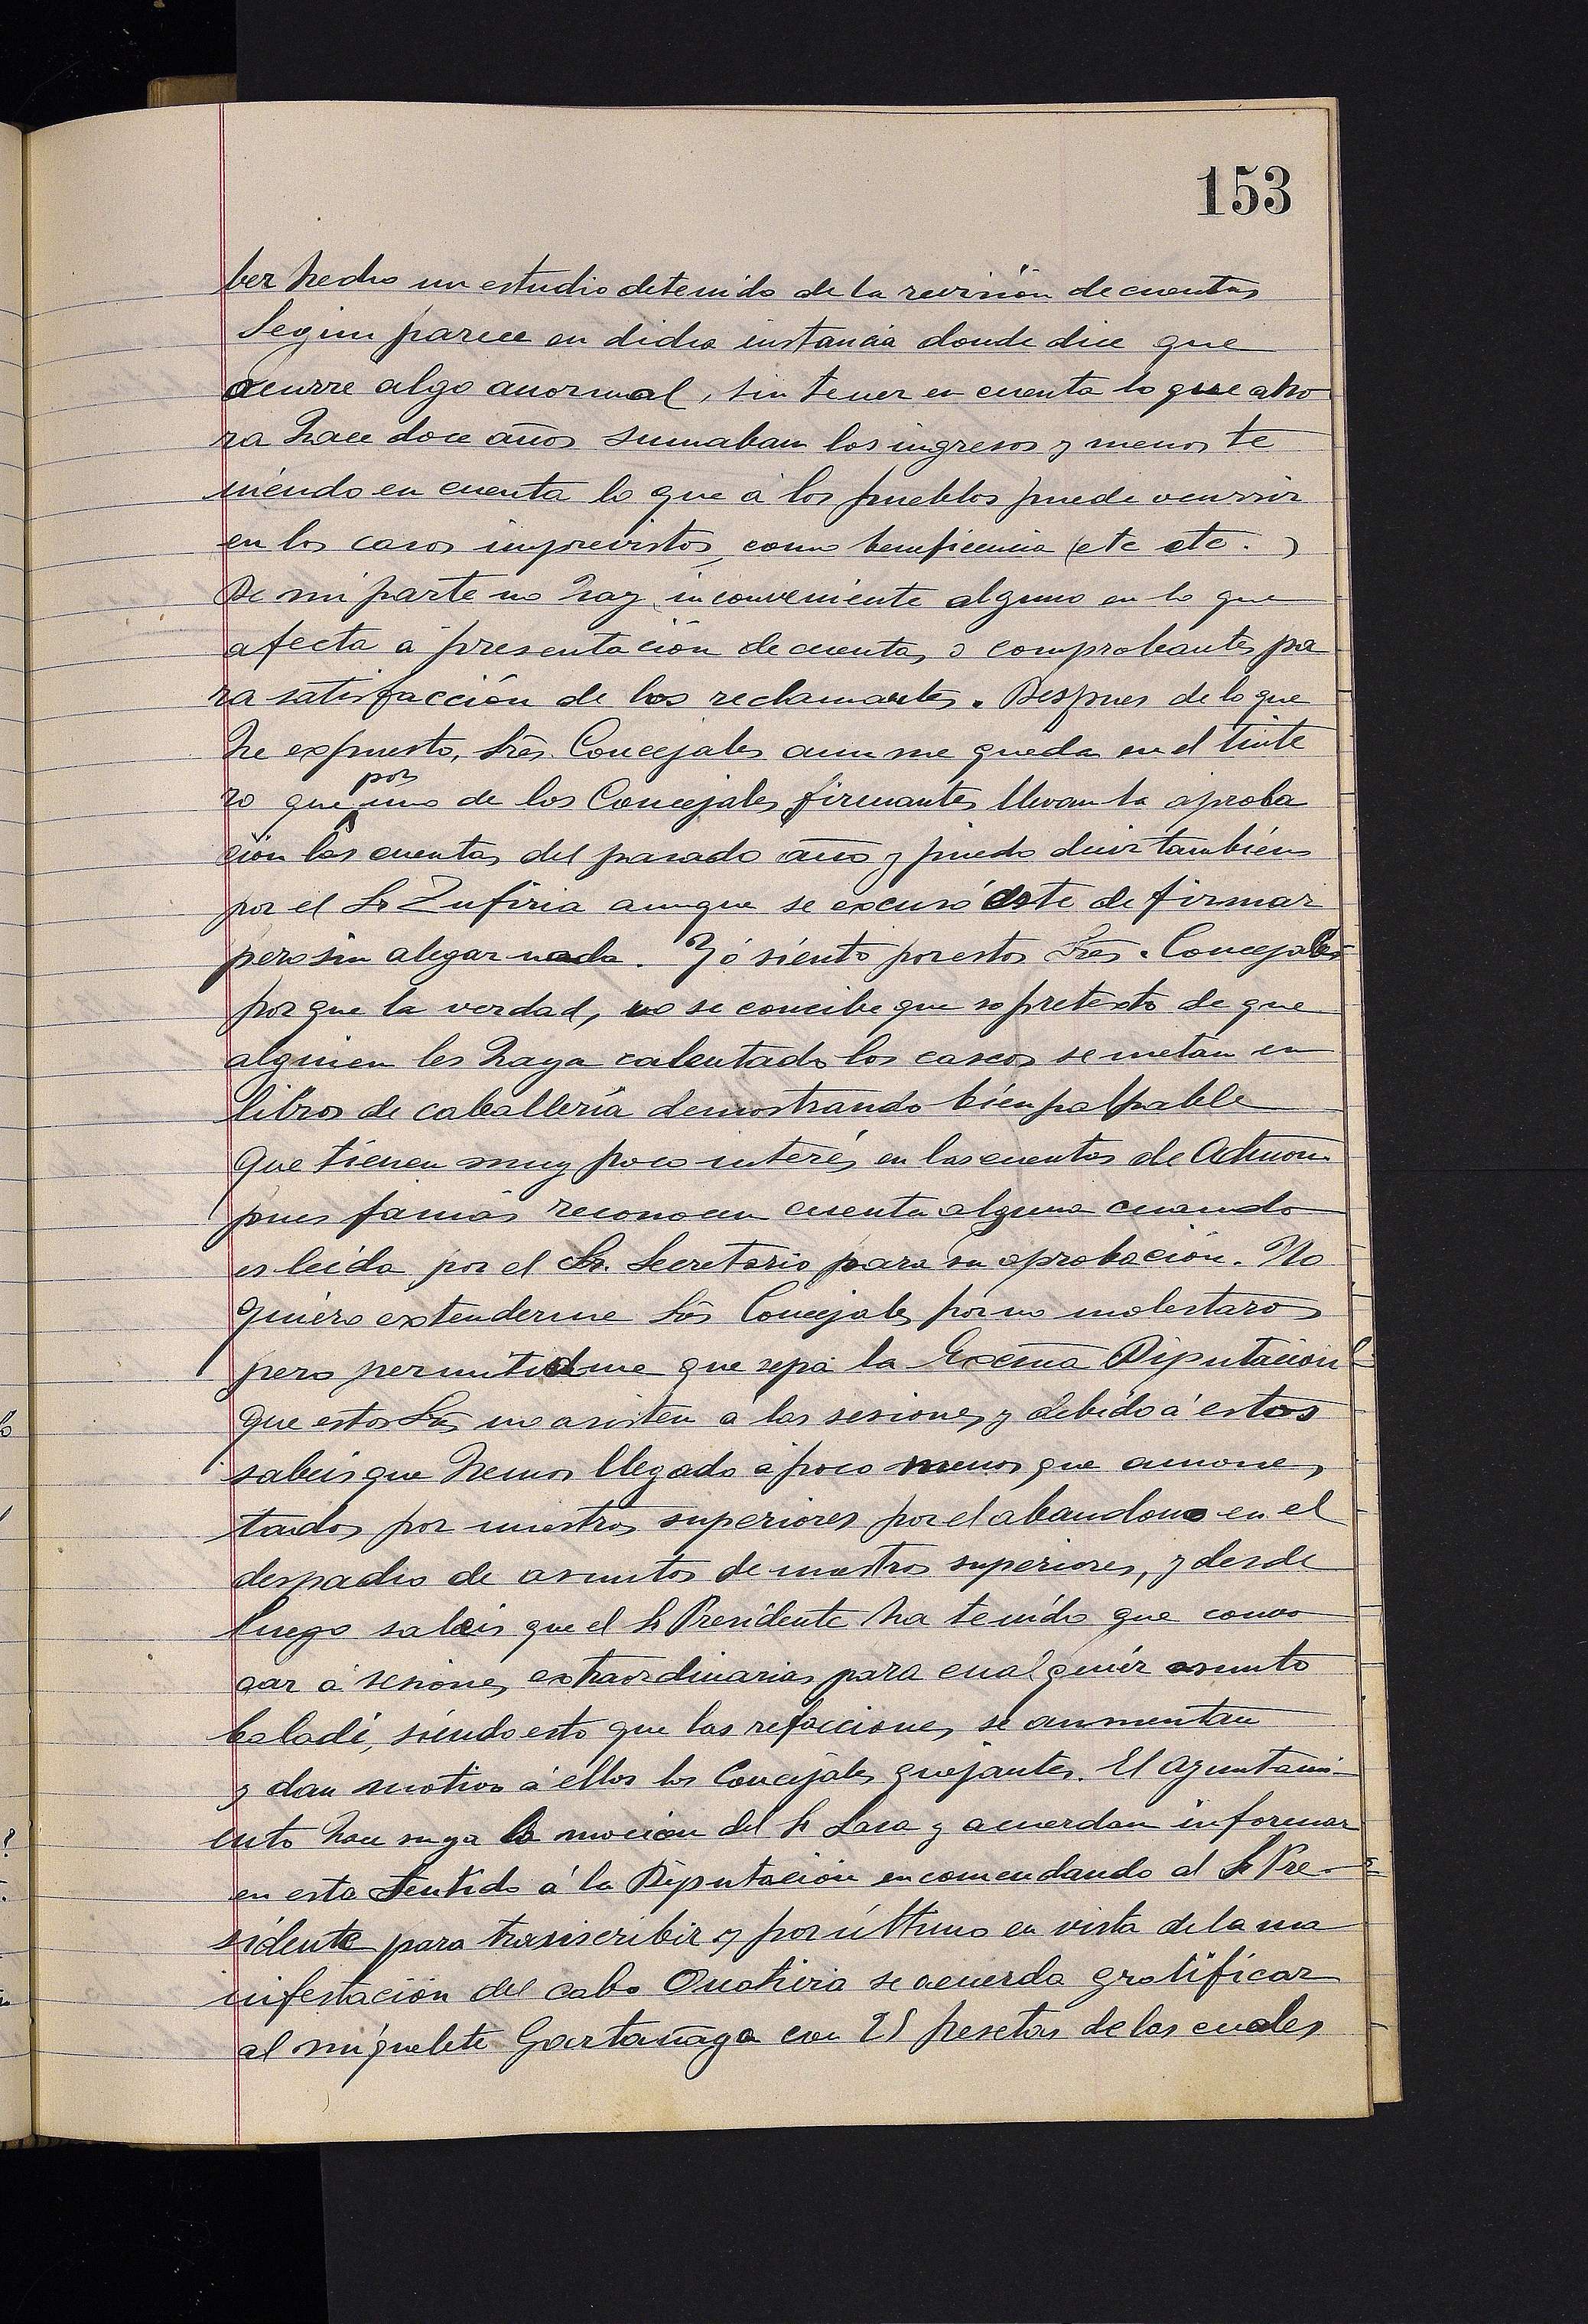 153
ber hecho un estudio detenido de la revisión de cuentas
Segun parece en dicha instancia donde dice que
ocurre algo anormal, sin tener en cuenta lo que aho
ra hace doce años sumaban los ingresos y menos te
niendo en cuenta lo que á los pueblos puede ocurrir
en los casos imprevistos, como beneficencia (etc etc.)
De mi parte no hay inconveniente alguno en lo que
afecta á presentación de cuentas o comprobantes pa
ra satisfacción de los reclamantes. Despues de lo que
he expuesto, Sres. Concejales aun me queda en el tinte
ro que por uno de los Concejales firmantes llevan la aproba
ción las cuentas del pasado año y puedo decir también
por el Sr Zufiria aunque se excusó este de firmar
pero sin alegar nada. Yó siento por estos Sres. Concejales
porque la verdad, no se concibe que so pretexto de que
alguien les haya calentado los cascos se metan en
libros de caballería demostrando bien palpable
que tienen muy poco interés en las cuentas de Admon
pues jamás reconocen cuenta alguna cuando
es leída por el Sr. Secretario para su aprobación. No
quiero extenderme Srs Concejales por no molestaros
pero permitidme que sepa la Excma Diputación
que estos Srs no asisten a las sesiones y debido á estos
sabeis que hemos llegado á poco menos que amones
tados por nuestros superiores por el abandono en el
despacho de asuntos de nuestros superiores, y desde
luego sabeis que el Sr Presidente ha tenido que convo
car á sesiones extraordinarias para cualquier asunto
baladí, siendo esto que las refacciones se aumentan
y dan motivo á ellos los Concejales quejantes. El Ayuntami-
ento hace suya la moción del Sr Lasa y acuerdan informar
en esta sentido á la Diputación encomendando al Sr Pre-
sidente para transcribir y por último en vista de la ma
nifestación del cabo se acuerda gratificar
al miquelete Gartañaga con 25 pesetas de las cuales